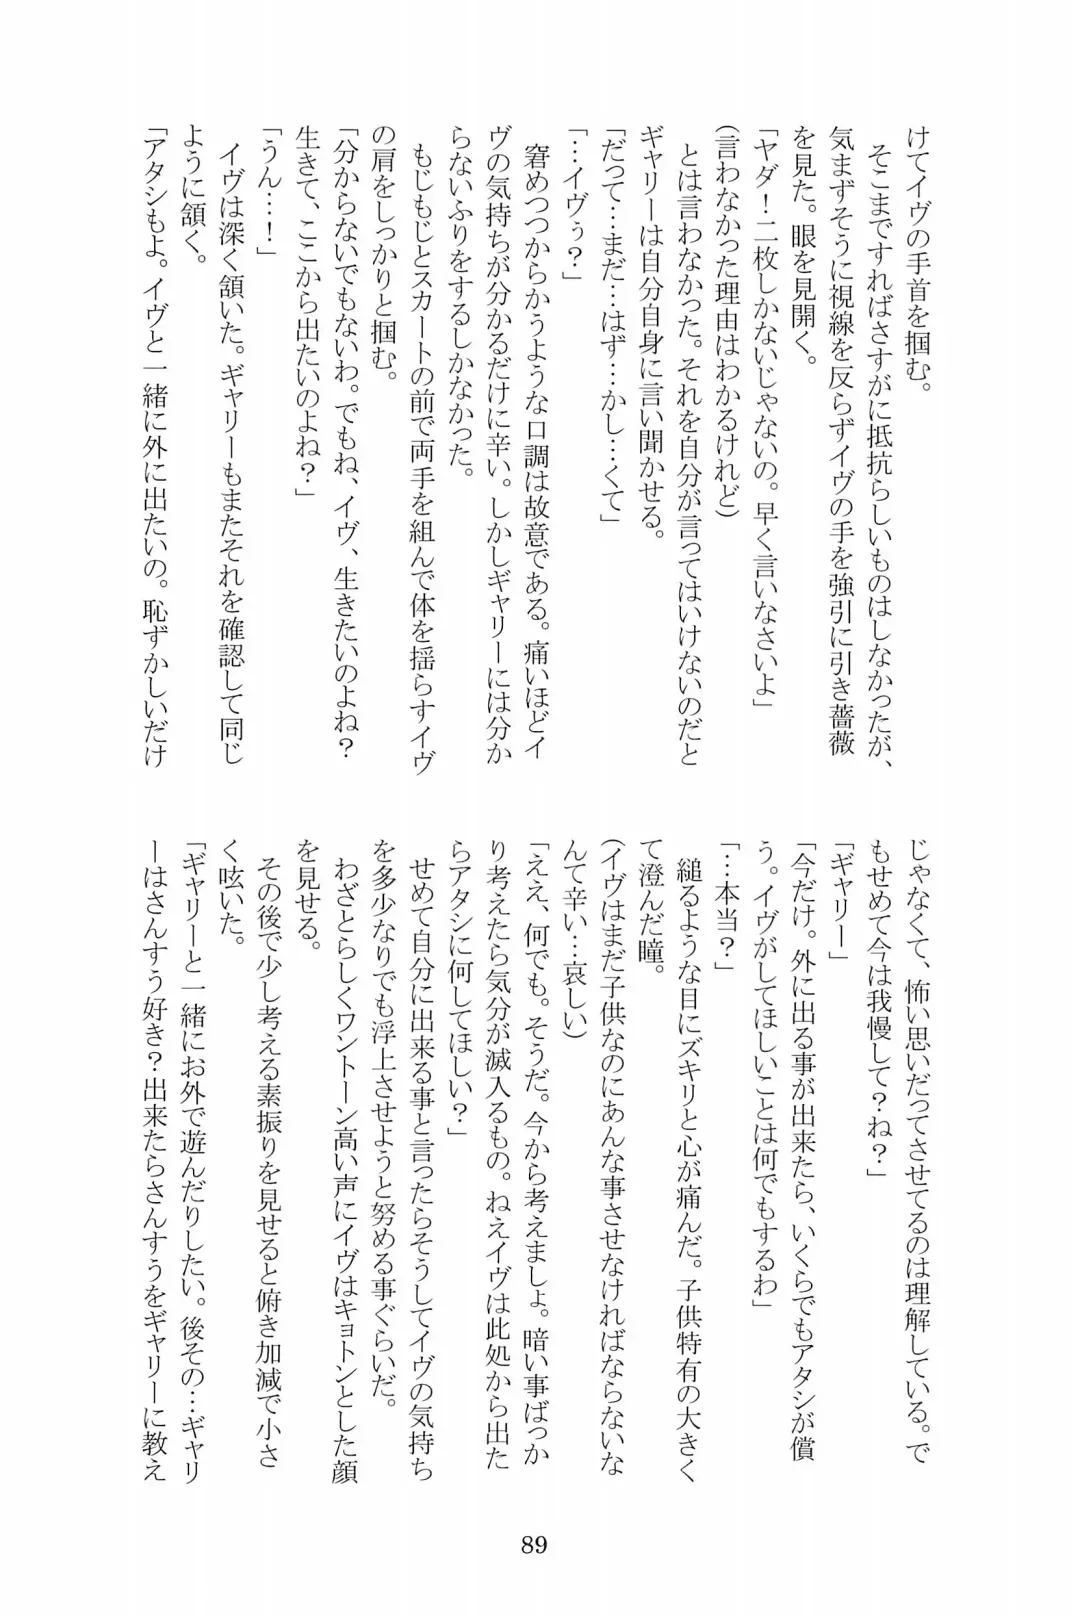 けてイヴの手首を掴む。
そこまですればさすがに抵抗らしいものはしなかったが、
気まずそうに視線を反らずイヴの手を強引に引き薔薇
を見た。眼を見開く。
「ヤダ！二枚しかないじゃないの。早く言いなさいよ」
(言わなかった理由はわかるけれど)
とは言わなかった。それを自分が言ってはいけないのだと
ギャリーは自分自身に言い聞かせる。
「だって…まだ…はず…かし…くて」
「…イヴぅ？」
窘めつつからかうような口調は故意である。痛いほどイ
ヴの気持ちが分かるだけに辛い。しかしギャリーには分か
らないふりをするしかなかった。
もじもじとスカートの前で両手を組んで体を揺らすイヴ
の肩をしっかりと掴む。
「分からないでもないわ。でもね、イヴ、生きたいのよね？
生きて、ここから出たいのよね？」
「うん…！」
イヴは深く頷いた。ギャリーもまたそれを確認して同じ
ように頷く。
「アタシもよ。イヴと一緒に外に出たいの。恥ずかしいだけ
じゃなくて、怖い思いだってさせてるのは理解している。で
もせめて今は我慢して？ね？」
「ギャリー」
「今だけ。外に出る事が出来たら、いくらでもアタシが償
う。イヴがしてほしいことは何でもするわ」
「…本当？」
縋るような目にズキリと心が痛んだ。子供特有の大きく
て澄んだ瞳。
(イヴはまだ子供なのにあんな事させなければならないな
んて辛い…哀しい)
「ええ、何でも。そうだ。今から考えましょ。暗い事ばっか
り考えたら気分が滅入るもの。ねえイヴは此処から出た
らアタシに何してほしい？」
せめて自分に出来る事と言ったらそうしてイヴの気持ち
を多少なりでも浮上させようと努める事ぐらいだ。
わざとらしくワントーン高い声にイヴはキョトンとした顔
を見せる。
その後で少し考える素振りを見せると俯き加減で小さ
く呟いた。
「ギャリーと一緒にお外で遊んだりしたい。後その…ギャリ
ーはさんすう好き？出来たらさんすうをギャリーに教え
89